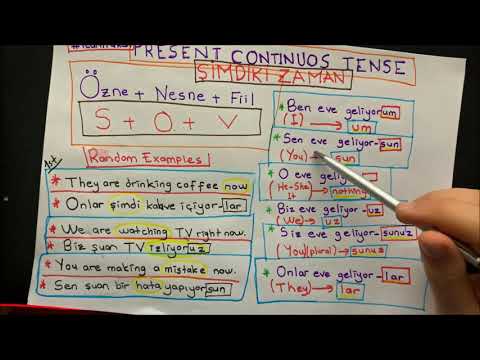 PRESENT CONTINUOS TENSE
ŞİMDİKİ ZAMAN
Özne + Nesne + Fiil
S + O + V
1st
Random Examples
* They are drinking coffee now
* Onlar şimdi kahve içiyor-lar
* We are watching TV right now.
* Biz şuan TV izliyoruz
* You are making a mistake now.
* Sen şuan bir hata yapıyorsun
* Ben eve geliyorum
(I) → um
* Sen eve geliyor-sun
(You) → sun
* O eve geliyor-
(He-She It) → nothing
* Biz eve geliyor-uz
(We) → uz
* Siz eve geliyor-sunuz
(You (plural) → sunuz
* Onlar eve geliyor-lar
(They) → lar